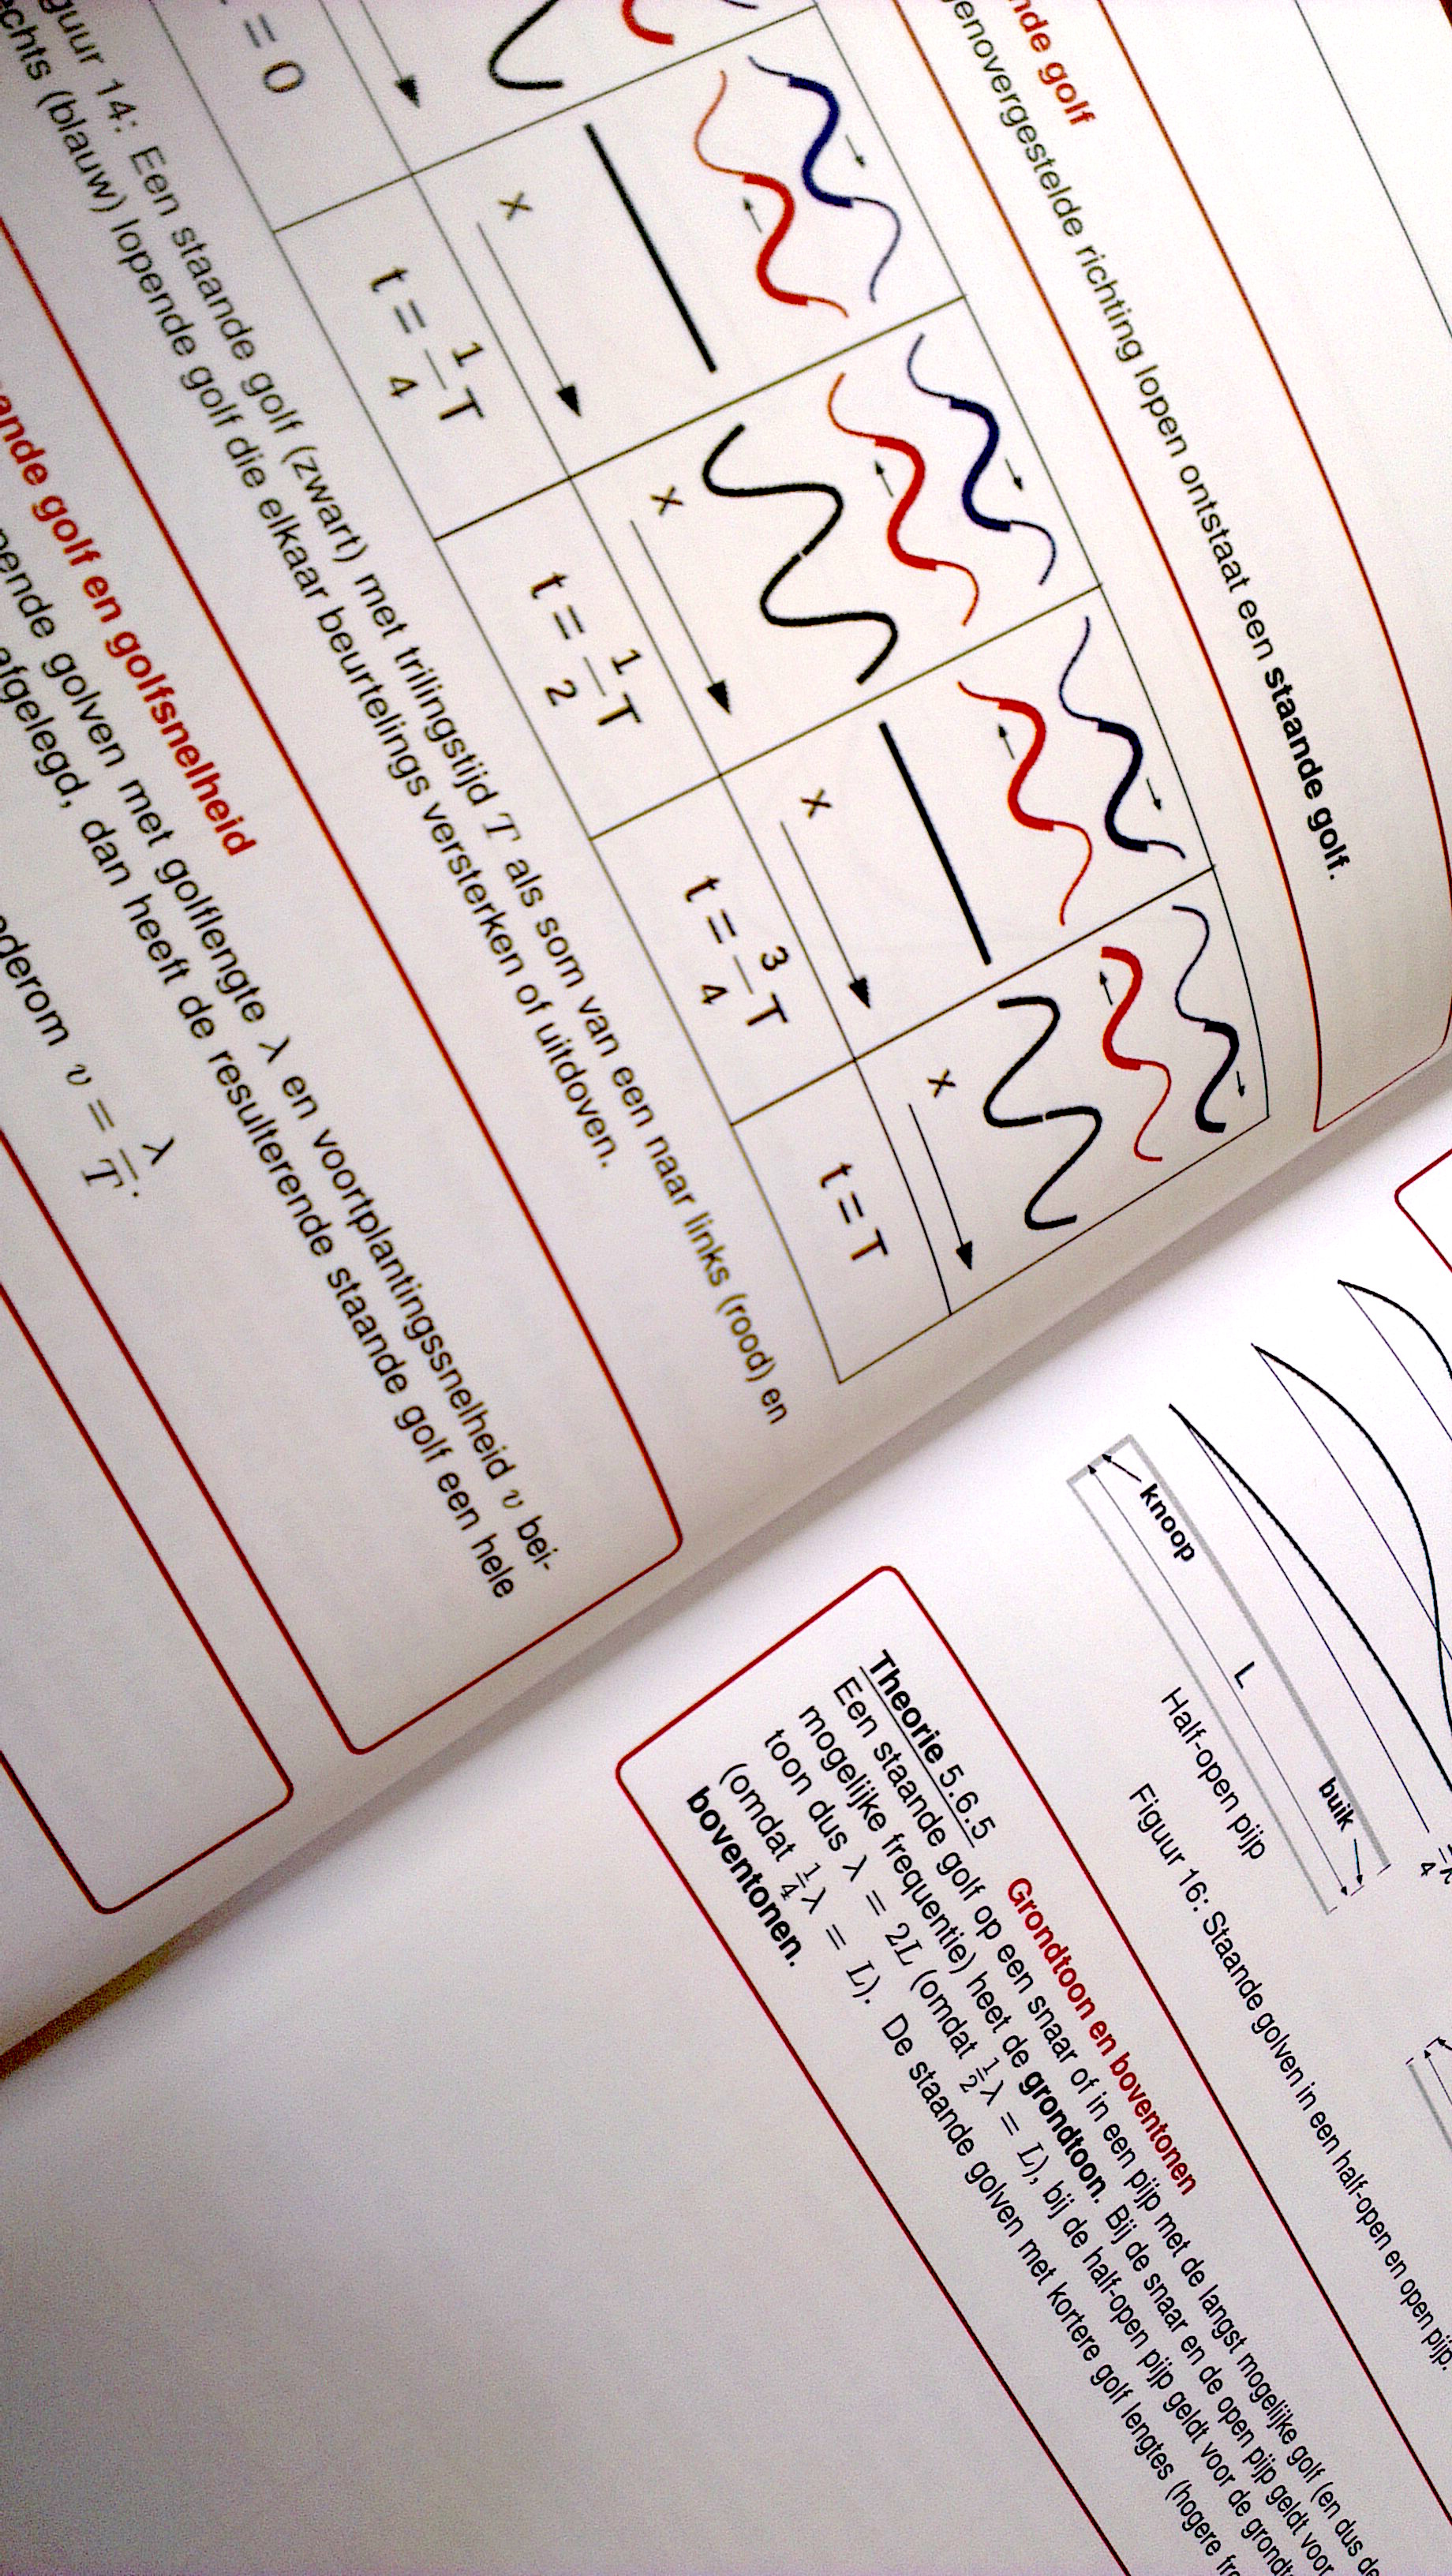 nde golf
enovergestelde richting lopen ontstaat een staande golf.
x x x x
= 0 t = 1/4 T t = 1/2 T t = 3/4 T t = T
14: Een staande golf (zwart) met trilingstijd T als som van een naar links (rood) en
(blauw) lopende golf die elkaar beurtelings versterken of uitdoven.
golf en golfsnelheid
golven met golflengte λ en voortplantingssnelheid v bei-
afgelegd, dan heeft de resulterende staande golf een hele
v = λ/T.
knoop
L
buik
Half-open pijp
Figuur 16: Staande golven in een half-open en open pijp.
Theorie 5.6.5 Grondtoon en boventonen
Een staande golf op een snaar of in een pijp met de langst mogelijke golf (en dus de
mogelijke frequentie) heet de grondtoon. Bij de snaar en de open pijp geldt voor
toon dus λ = 2L (omdat ½λ = L), bij de half-open pijp geldt voor de
(omdat ¼λ = L). De staande golven met kortere golf lengtes (hogere
boventonen.